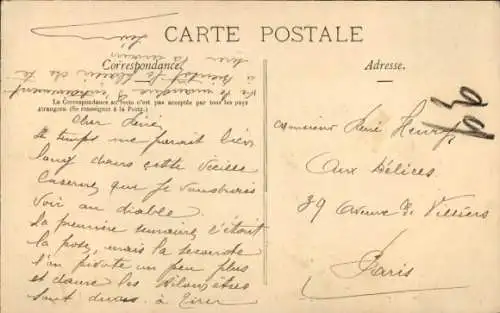 CARTE POSTALE
Correspondance.
Adresse.
La Correspondance au recto n'est pas acceptée par tous les pays
étrangers (Se renseigner à la Poste.)
Cher René
le temps me parait bien
long dans cette vieille
Caserne que je voudrais
voir au diable.
La première semaine c'était
la pose, mais la seconde
l'on pivote un peu plus
et dame les kilomètres
sont durs à tirer
à bientôt le plaisir de te
lire
Monsieur René Henry
Aux Délices
39 Avenue de Villiers
Paris